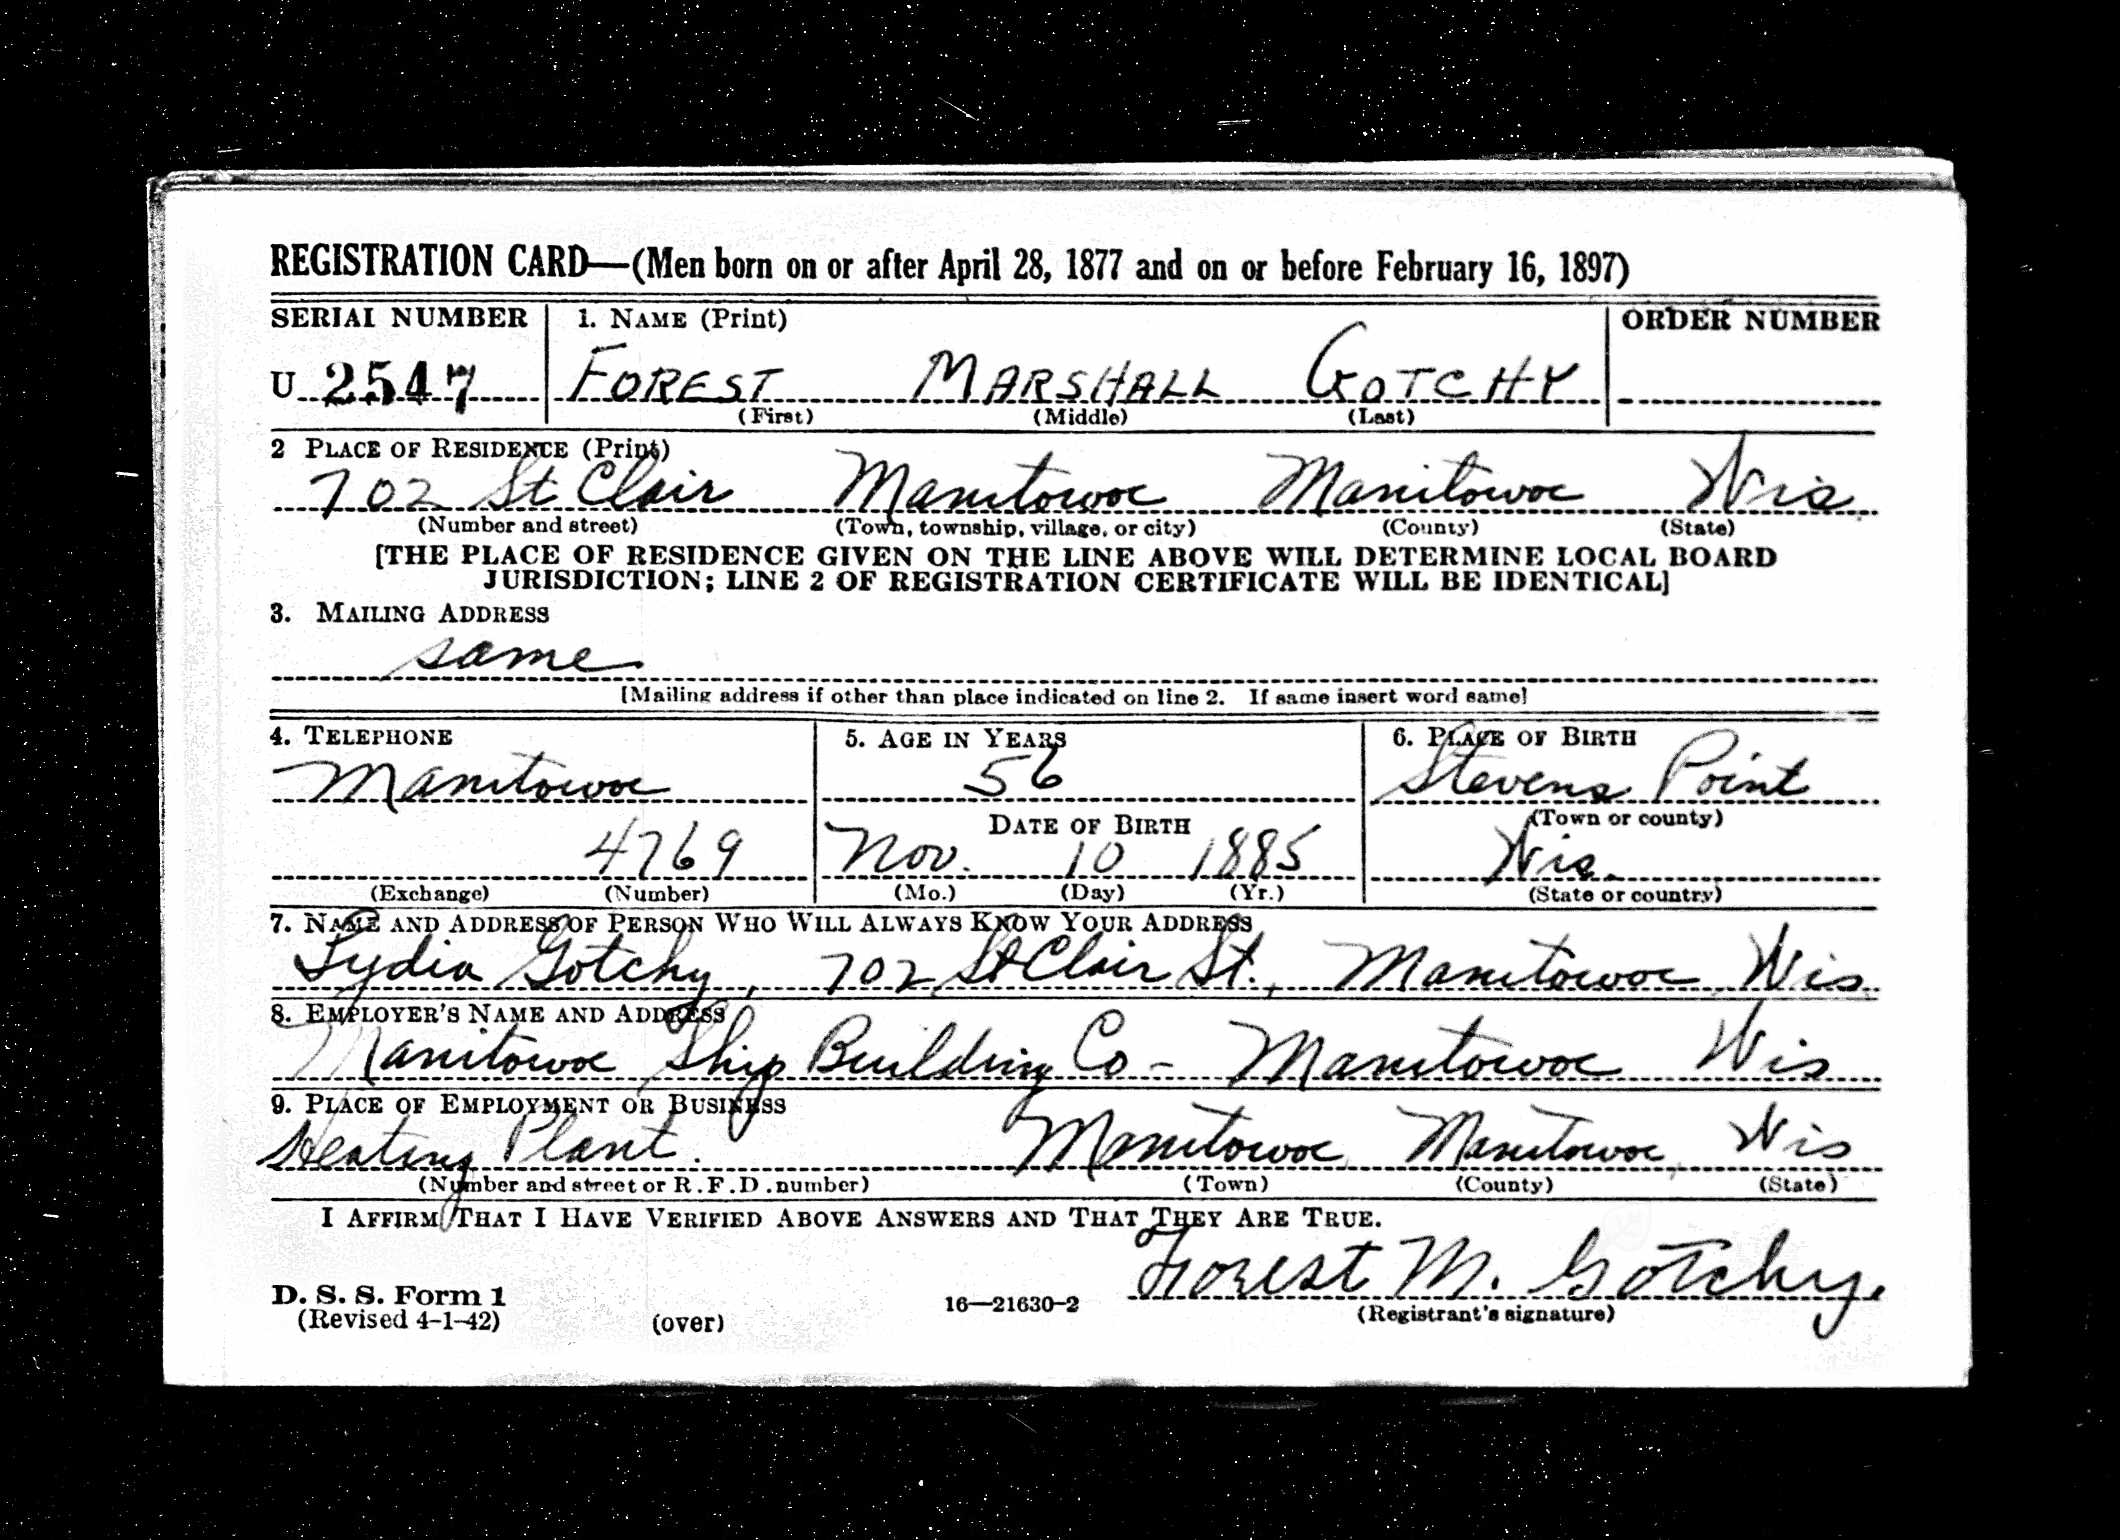 REGISTRATION CARD—(Men born on or after April 28, 1877 and on or before February 16, 1897)
SERIAL NUMBER 1. NAME (Print) ORDER NUMBER
U 2547 FOREST MARSHALL GOTCHY
(First) (Middle) (Last)
2 PLACE OF RESIDENCE (Print)
702 St Clair Manitowoc Manitowoc Wis.
(Number and street) (Town, township, village, or city) (County) (State)
[THE PLACE OF RESIDENCE GIVEN ON THE LINE ABOVE WILL DETERMINE LOCAL BOARD
JURISDICTION; LINE 2 OF REGISTRATION CERTIFICATE WILL BE IDENTICAL]
3. MAILING ADDRESS
same
[Mailing address if other than place indicated on line 2. If same insert word same]
4. TELEPHONE 5. AGE IN YEARS 6. PLACE OF BIRTH
Manitowoc 56 Stevens Point
DATE OF BIRTH (Town or county)
4769 Nov. 10 1885 Wis.
(Exchange) (Number) (Mo.) (Day) (Yr.) (State or country)
7. NAME AND ADDRESS OF PERSON WHO WILL ALWAYS KNOW YOUR ADDRESS
Lydia Gotchy, 702 St Clair St., Manitowoc Wis.
8. EMPLOYER'S NAME AND ADDRESS
Manitowoc Ship Building Co - Manitowoc Wis
9. PLACE OF EMPLOYMENT OR BUSINESS
Heating Plant. Manitowoc, Manitowoc, Wis
(Number and street or R.F.D. number) (Town) (County) (State)
I AFFIRM THAT I HAVE VERIFIED ABOVE ANSWERS AND THAT THEY ARE TRUE.
Forest M. Gotchy.
D. S. S. Form 1
(Revised 4-1-42) (over) 16—21630-2 (Registrant's signature)